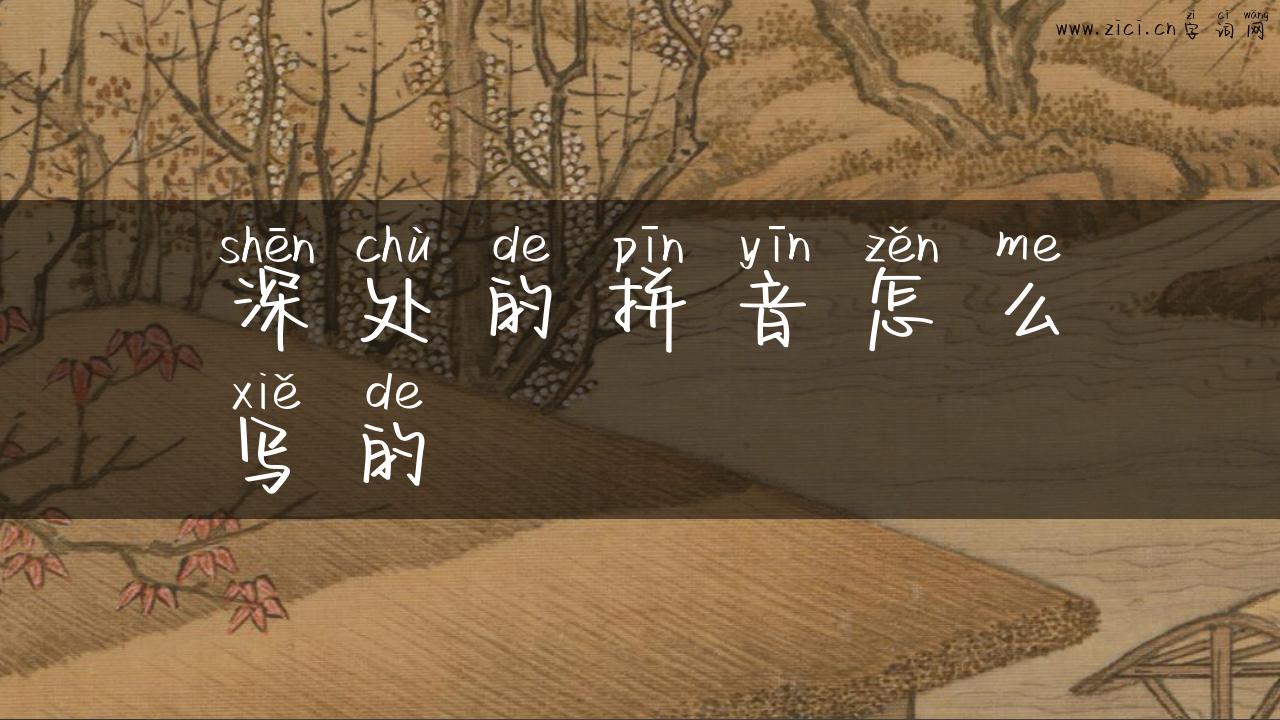 zì cí wǎng
www.zici.cn 字词网
shēn chù de pīn yīn zěn me
深处的拼音怎么
xiě de
写的